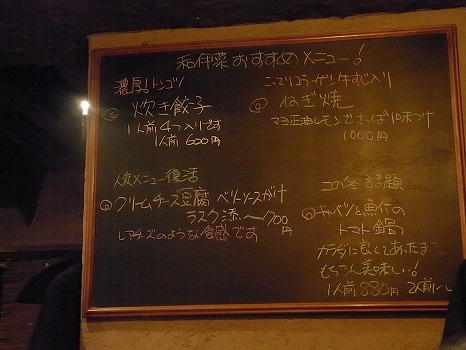 和伊菜おすすめメニュー!
濃厚!トンコツ
炊き餃子
1人前4つ入りです
1人前 600円
こってりコラーゲン牛すじ入り
ねぎ焼
マヨ正油レモンでさっぱり味つけ
1000円
人気メニュー復活
クリームチーズ豆腐 ベリーソースがけ
ラスク添 〜700円
レアチーズのような食感です
この冬話題
キャベツと魚介の
トマト鍋
カラダに良くてあったまる
もちろん美味しい!
1人前 880円 2人前〜